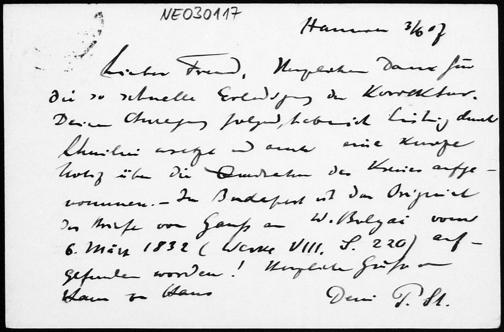 NE030117
Hannover 3/6 07
Lieber Freund, Herzlichen Dank für
die so schnelle Erledigung der Korrektur.
Deiner Anregung folgend, habe ich durch
ersetzt und eine kurze
Notiz über die Quadratur des Kreises aufge-
nommen. – In Budapest ist das Original
des Briefs von Gauß an W. Bolyai vom
6. März 1832 (Werke VIII, S. 220) auf-
gefunden worden! Herzliche Grüße von
Haus zu Haus
Dein P. St.